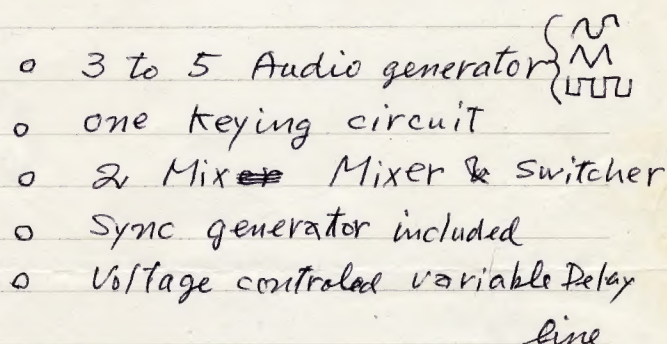 o 3 to 5 Audio generator
o one keying circuit
o 2 Mixer Mixer & Switcher
o Sync generator included
o Voltage controled variable Delay
line